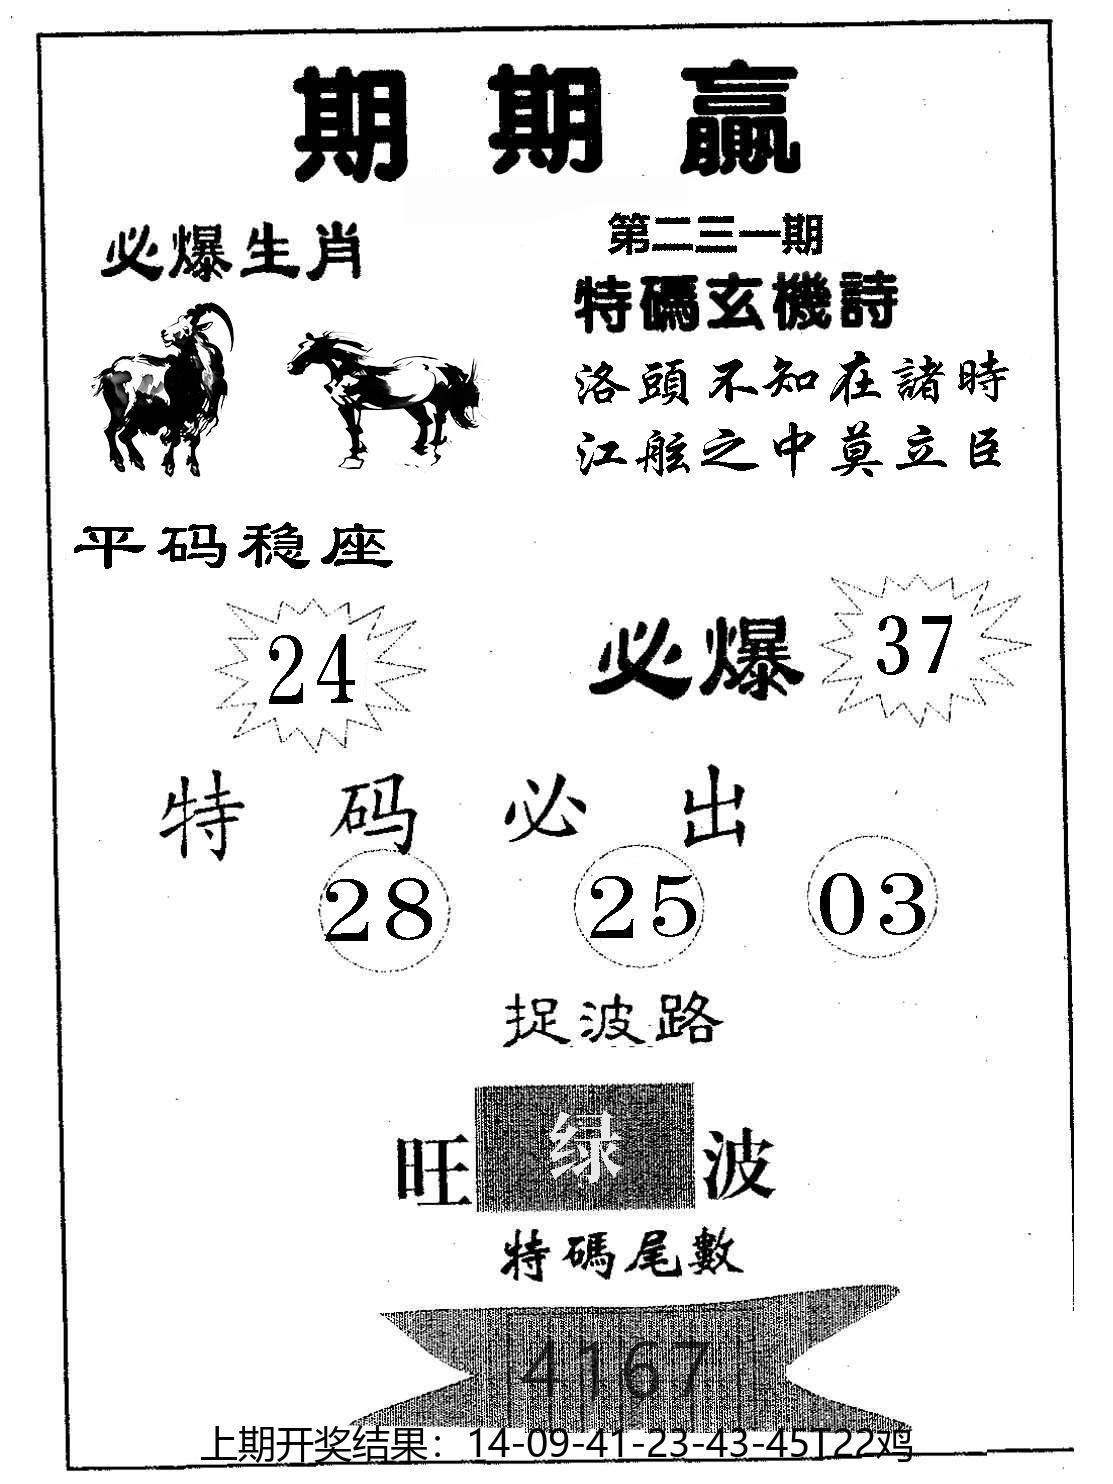 期期赢
必爆生肖
第二三一期
特碼玄機詩
洛頭不知在諸時
江舷之中莫立臣
平码稳座
24
必爆 37
特码必出
28 25 03
捉波路
旺绿波
特碼尾數
4167
上期开奖结果：14-09-41-23-43-45T22鸡